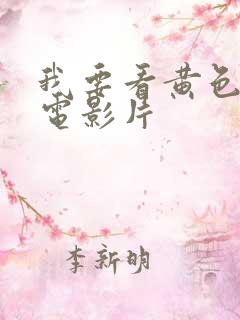 我要看黄色
電影片
李新明